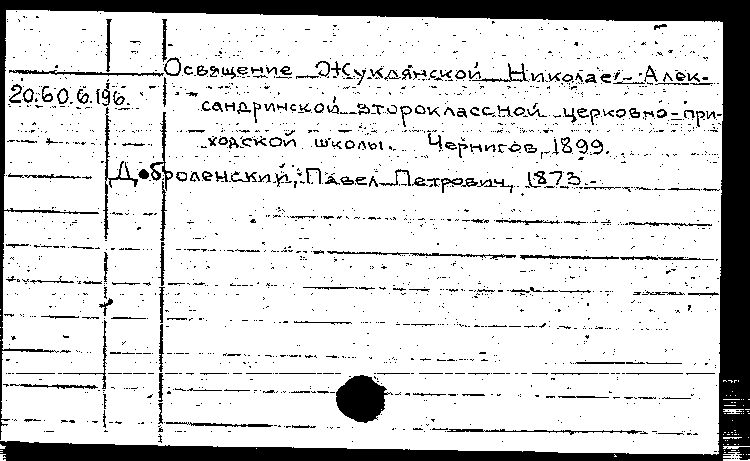 Освящение Жуклянской Николае- Алек-
20.60.6.196. сандринской второклассной церковно-при-
ходской школы. Чернигов, 1899.
Доброленский, Павел Петрович, 1873-